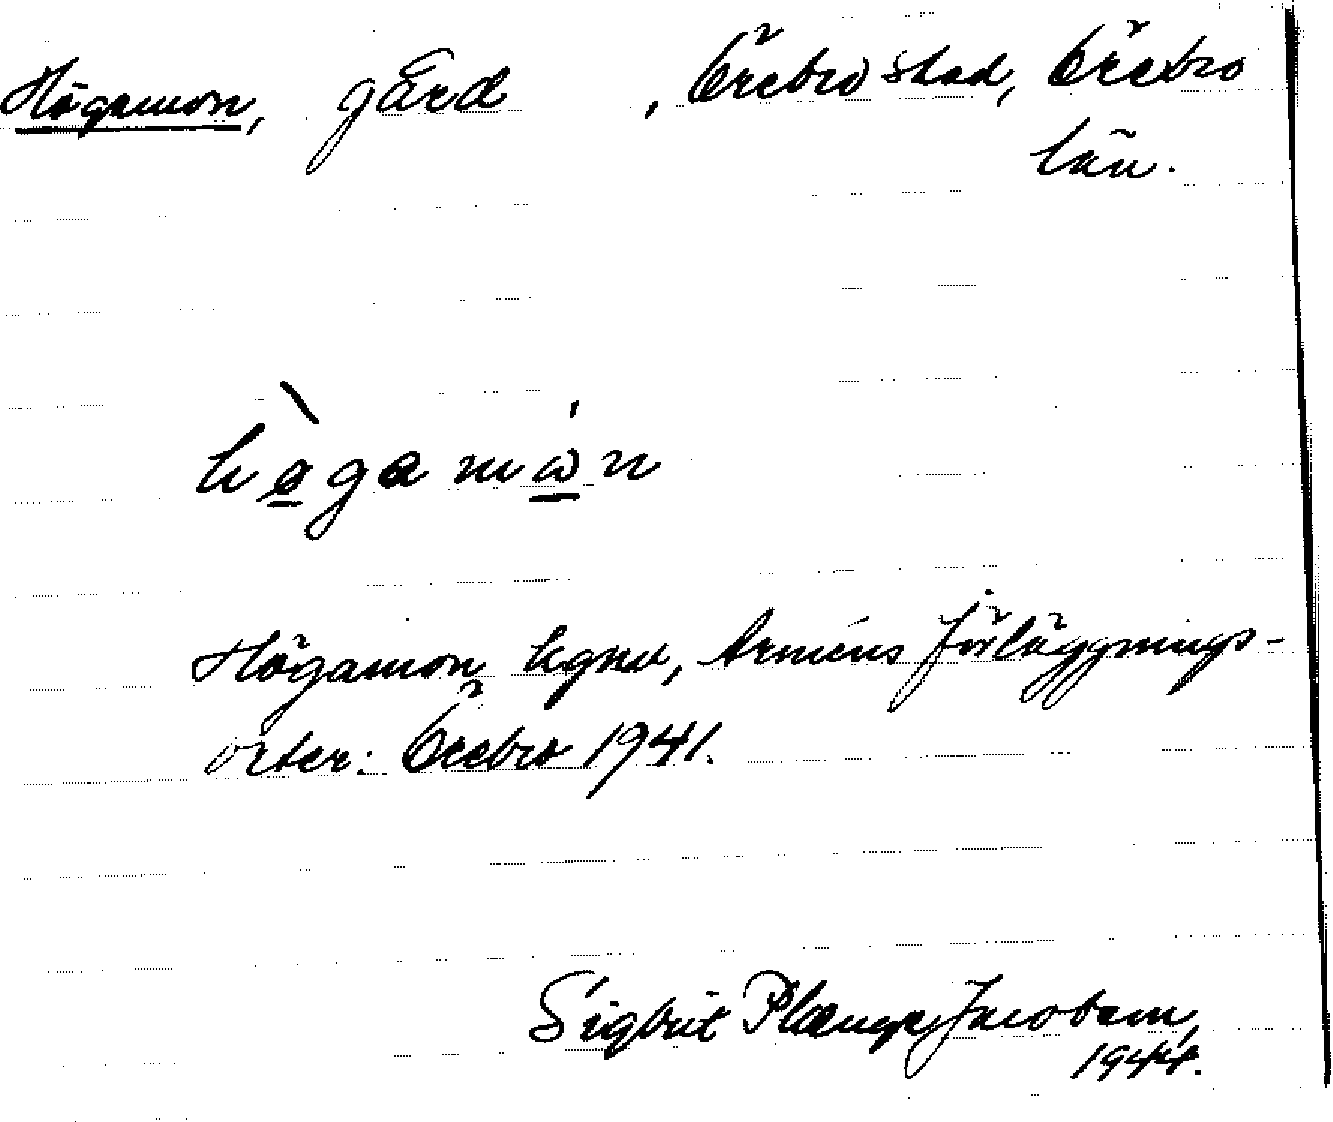 Högamon, gård , Örebro stad, Örebro
län.
hò̤gamώ̲n
Högamon egna, Arméns förläggnings-
orter: Örebro 1941.
Sigbrit Plænge Jacobson,
1944.